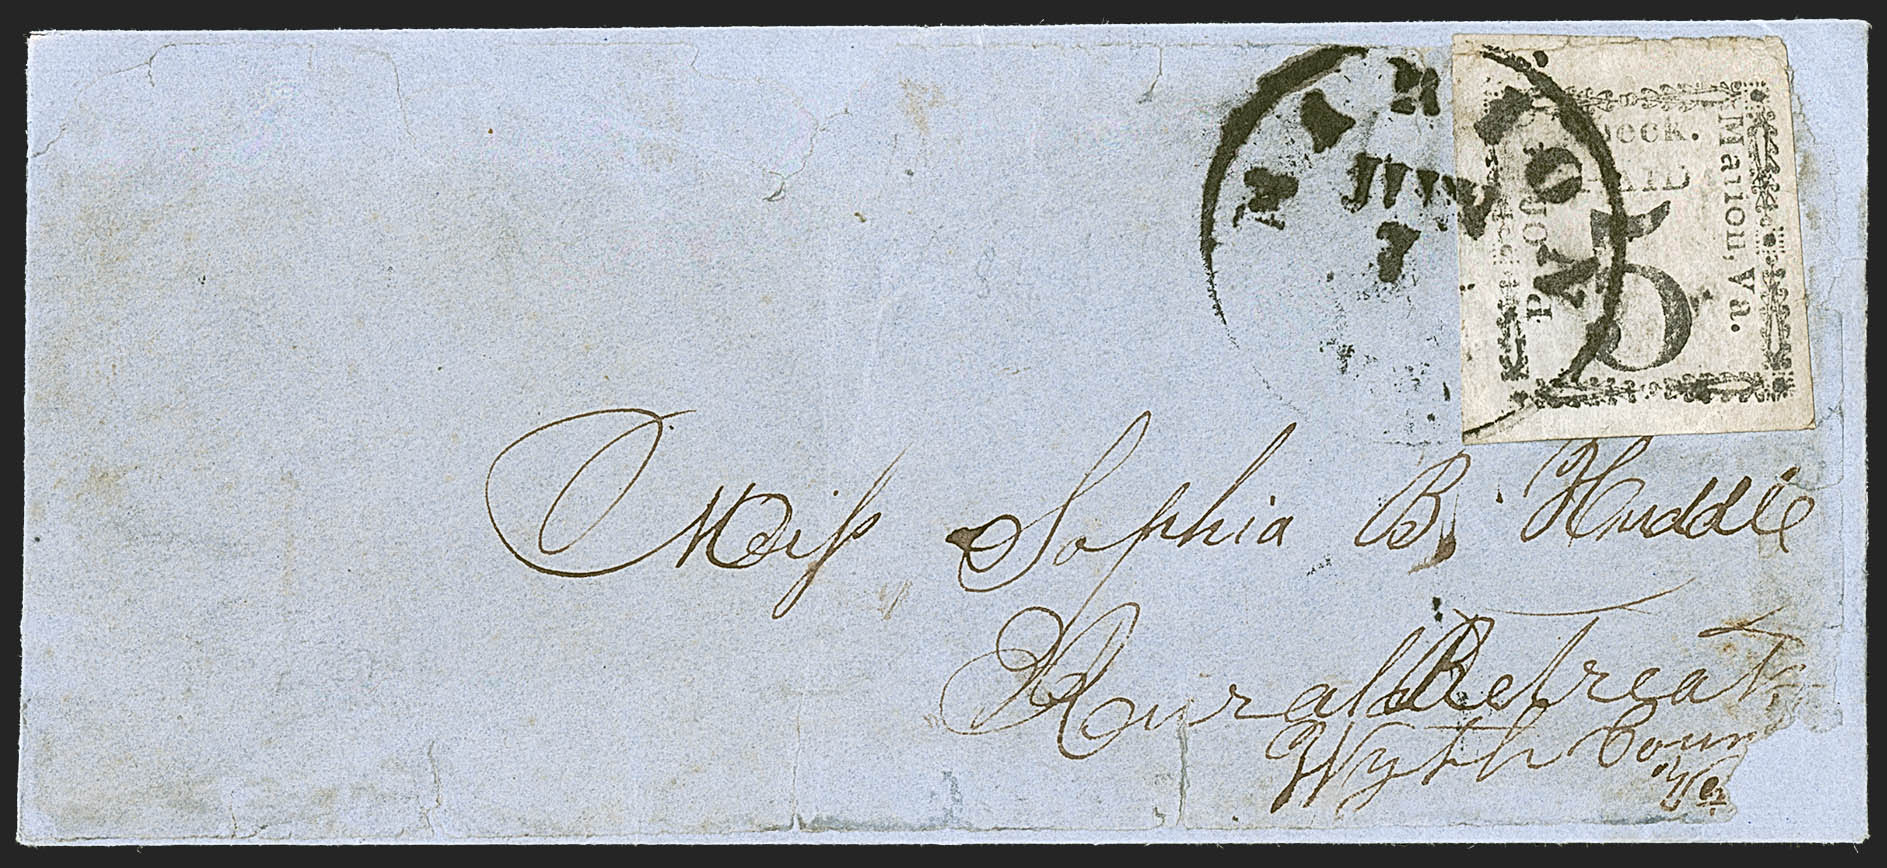 MARION
JUN
Check.
PAID
5
Marion, Va.
Miss Sophia B. Huddle
Rural Retreat
Wyth Coun
Va